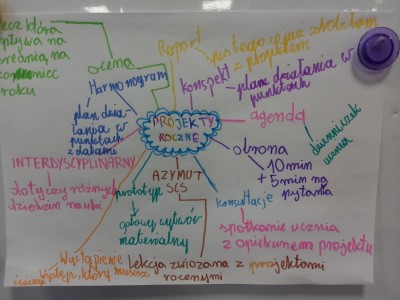 rzecz, która
wpływa na
średnią na
koniec
roku
ocena
Raport
spis tego, co zrobiłam
z projektem
Harmonogram
plan dzia-
łania w
punktach
z datami
konspekt
plan działania w
punktach
PROJEKTY
ROCZNE
agenda
dzienniczek
ucznia
obrona
10min
+5min na
pytania
INTERDYSCYPLINARNY
dotyczy różnych
dziedzin nauki
AZYMUT
SCS
lekcja związana z projektami
rocznymi
prototyp
gotowy wytwór
materialny
konsultacje
spotkanie ucznia
z opiekunem projektu
Wystąpienie
występ, który musisz